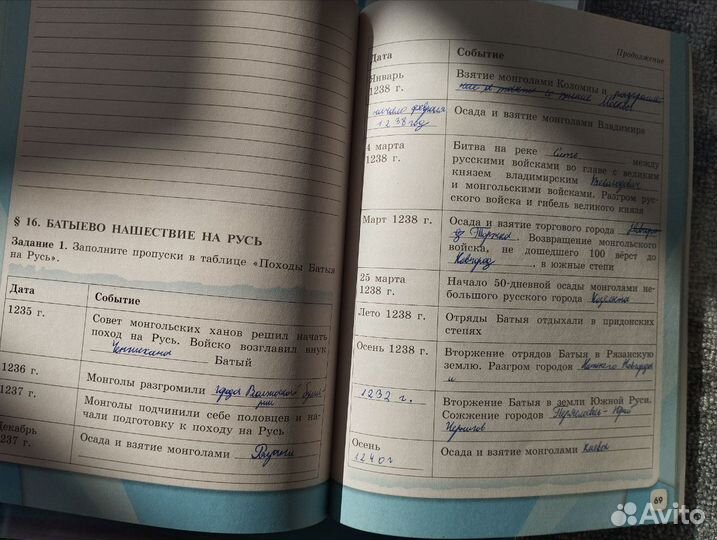 § 16. БАТЫЕВО НАШЕСТВИЕ НА РУСЬ
Задание 1. Заполните пропуски в таблице «Походы Батыя
на Русь».
Дата
Событие
1235 г.
Совет монгольских ханов решил начать
поход на Русь. Войско возглавил внук
Чингисхана Батый
1236 г.
Монголы разгромили города Волжской
1237 г.
Монголы подчинили себе половцев и на-
чали подготовку к походу на Русь
Декабрь
1237 г.
Осада и взятие монголами Рязани
Продолжение
Дата
Событие
Январь
1238 г.
Взятие монголами Коломны и
Москвы
начало февраля
1238 год
Осада и взятие монголами Владимира
4 марта
1238 г.
Битва на реке Сить между
русскими войсками во главе с великим
князем владимирским
и монгольскими войсками. Разгром рус-
ского войска и гибель великого князя
Март 1238 г.
Осада и взятие торгового города
Торжка. Возвращение монгольского
войска, не дошедшего 100 вёрст до
Новгород, в южные степи
25 марта
1238 г.
Начало 50-дневной осады монголами не-
большого русского города Козельска
Лето 1238 г.
Отряды Батыя отдыхали в придонских
степях
Осень 1238 г.
Вторжение отрядов Батыя в Рязанскую
землю. Разгром городов Нижнего Новгорода
и
1232 г.
Вторжение Батыя в земли Южной Руси.
Сожжение городов
Чернигов
Осень
1240 г
Осада и взятие монголами Киева
69
Avito